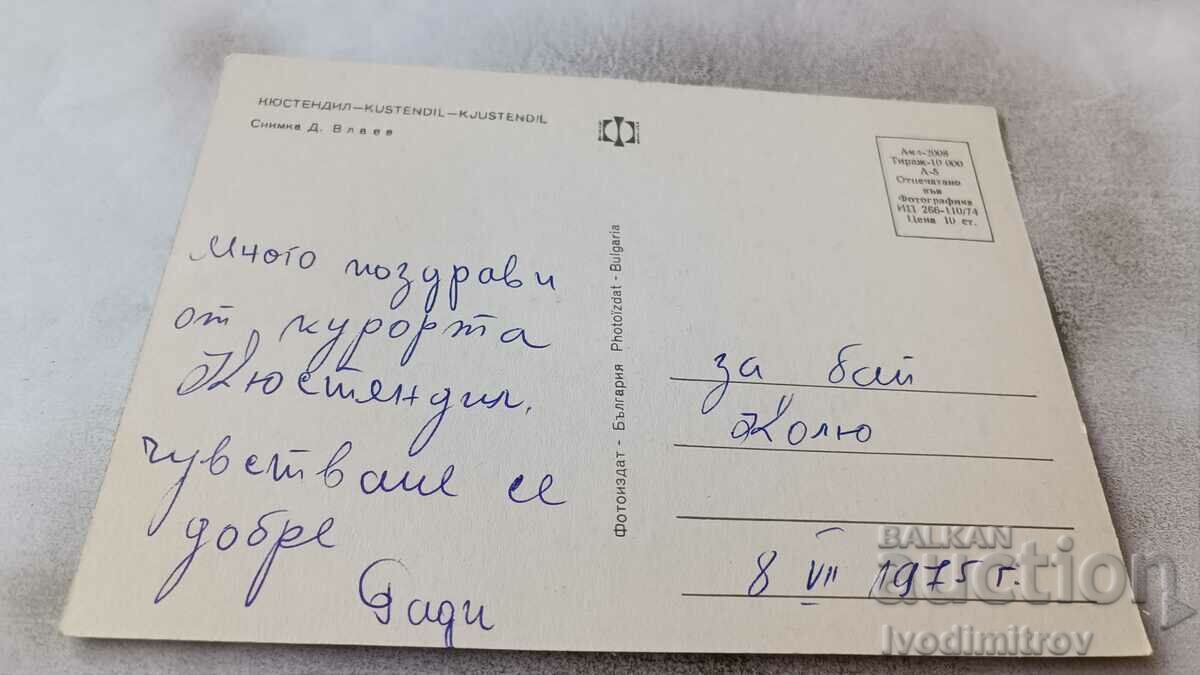 КЮСТЕНДИЛ—KUSTENDIL—KJUSTENDIL
Снимка Д. Влаев
Акл-2008
Тираж-10 000
А-8
Отпечатано
във
Фотографика
ИП 266-110/74
Цена 10 ст.
Много поздрави
от курорта
Кюстендил.
чувстваме се
добре
Ради
Фотоиздат - България Photoizdat - Bulgaria
за бай
Колю
8 VII 1975 г.
BALKAN
auction
Ivodimitrov